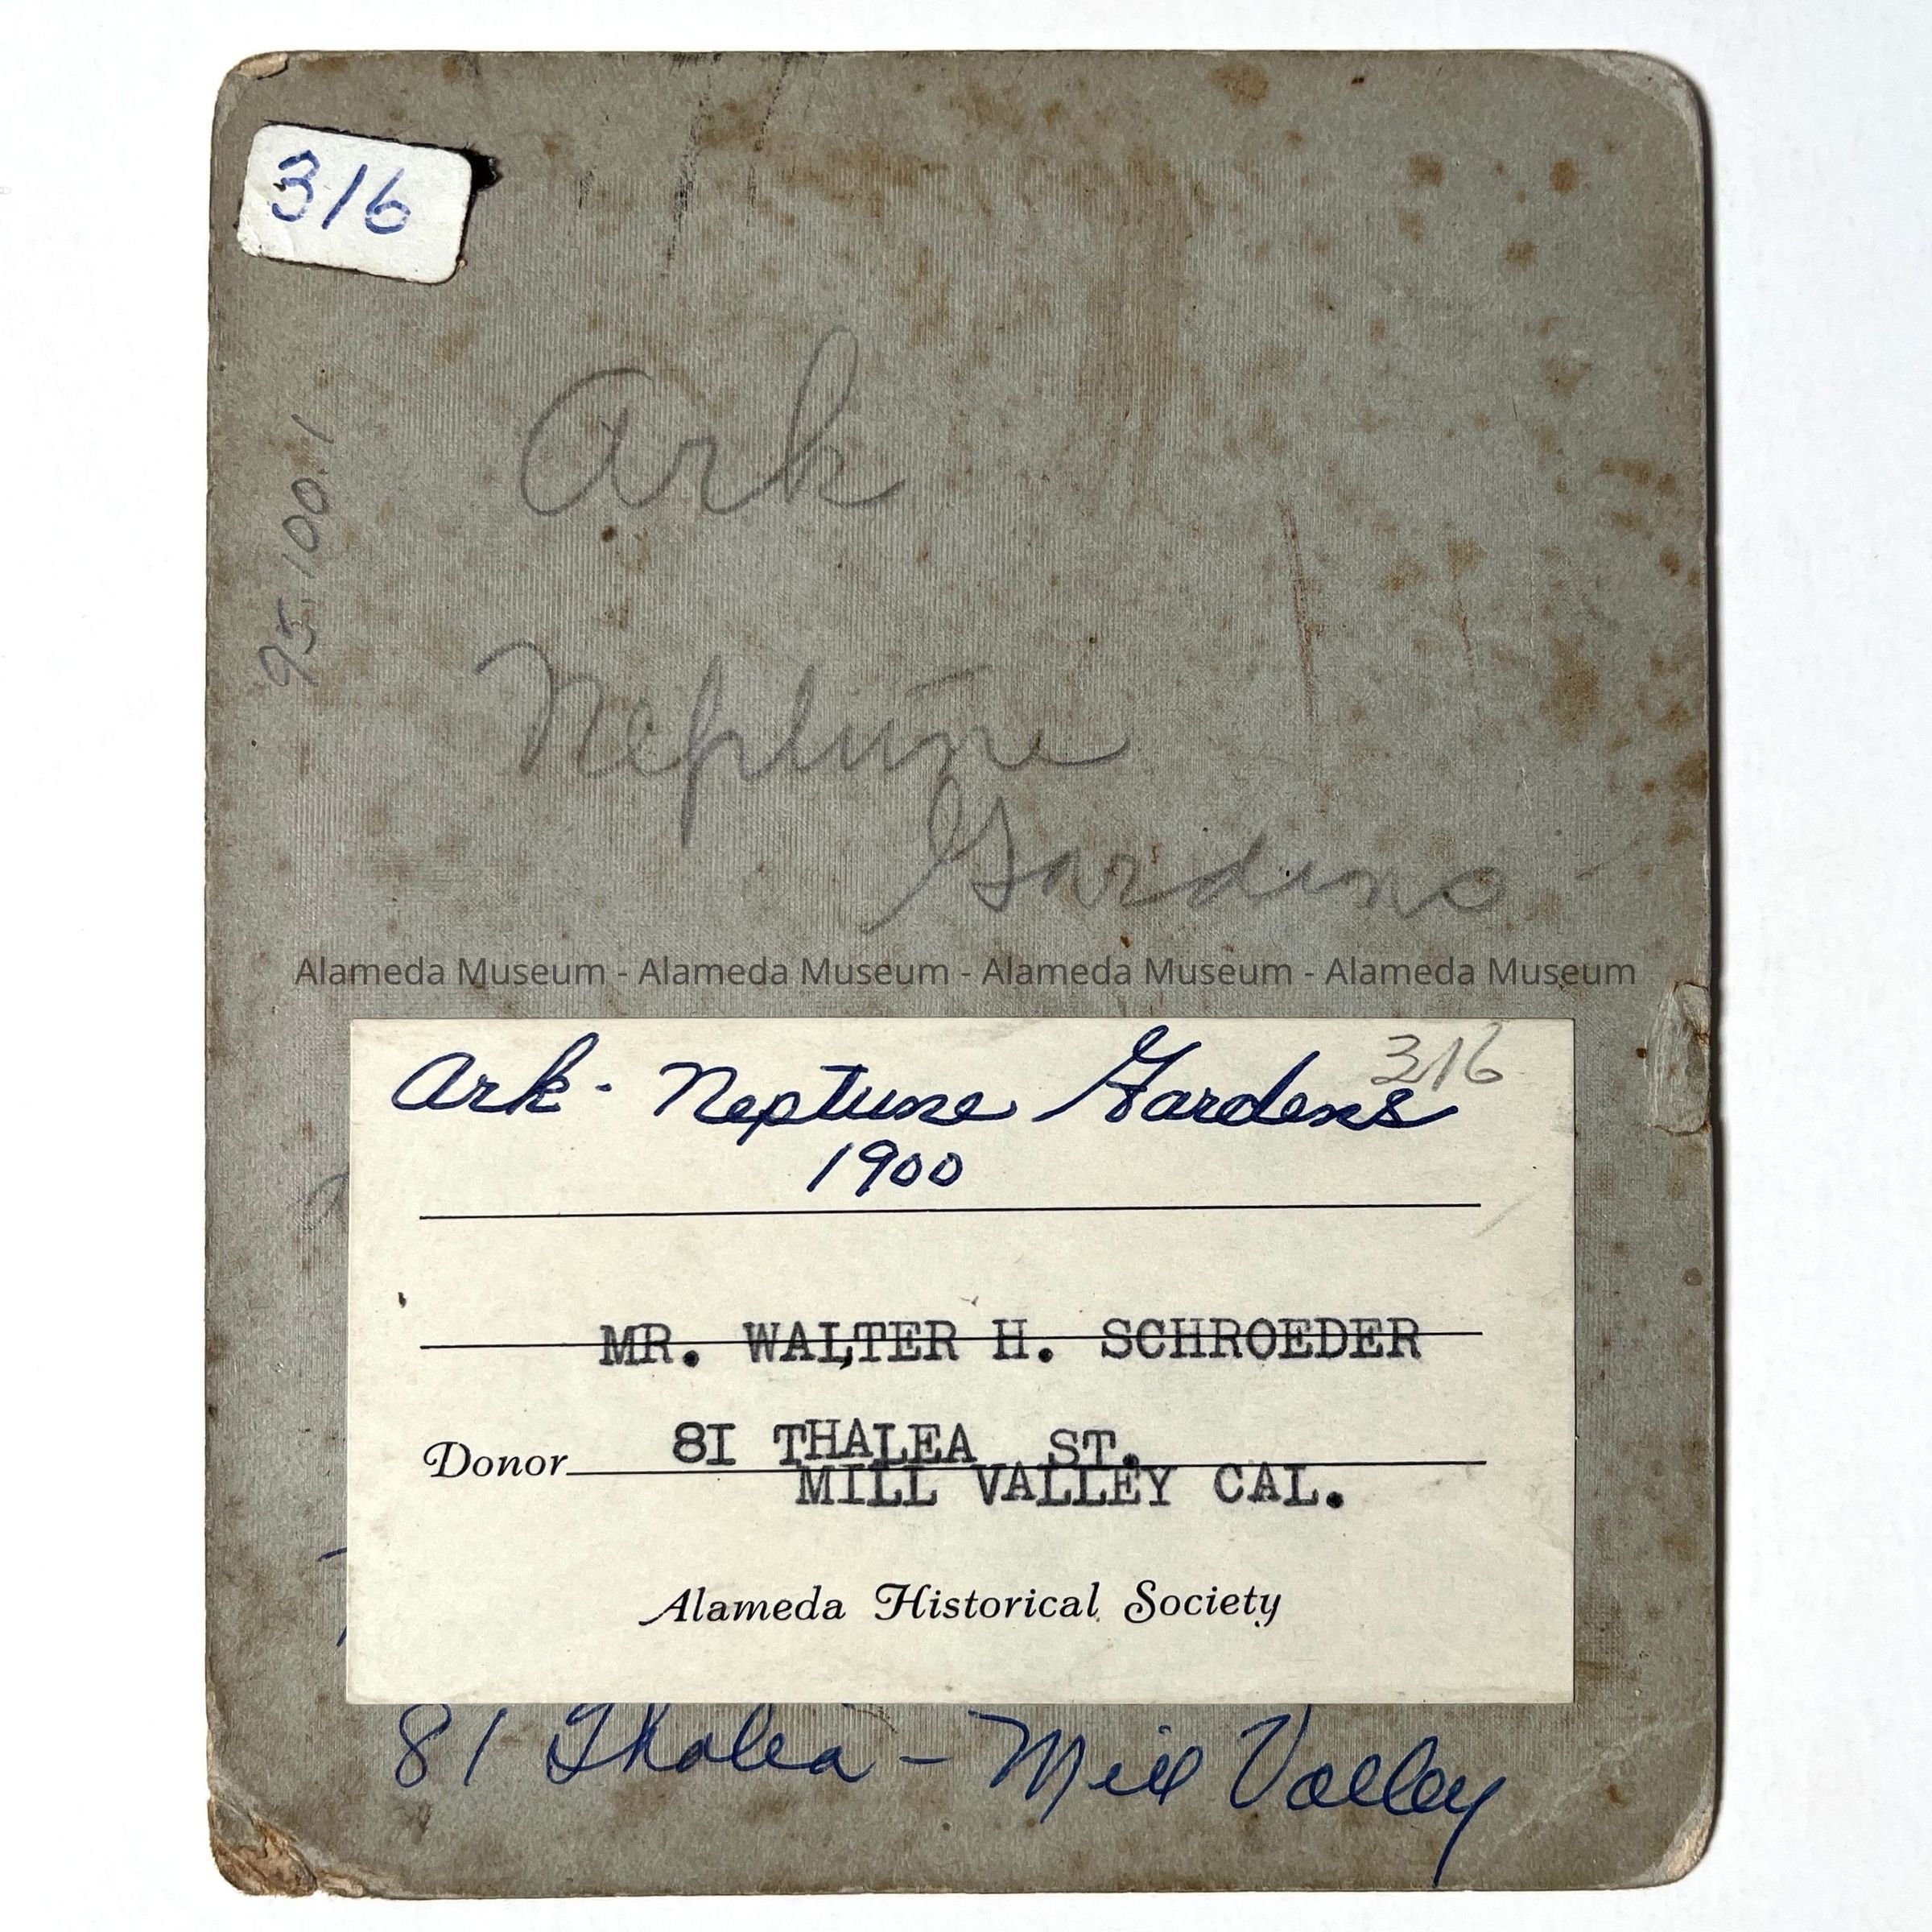 316
95.100.1
Ark
Neptune
Gardens
Alameda Museum - Alameda Museum - Alameda Museum - Alameda Museum
316
Ark - Neptune Gardens
1900
MR. WALTER H. SCHROEDER
Donor 81 THALEA ST.
MILL VALLEY CAL.
Alameda Historical Society
81 Thalea - Mill Valley